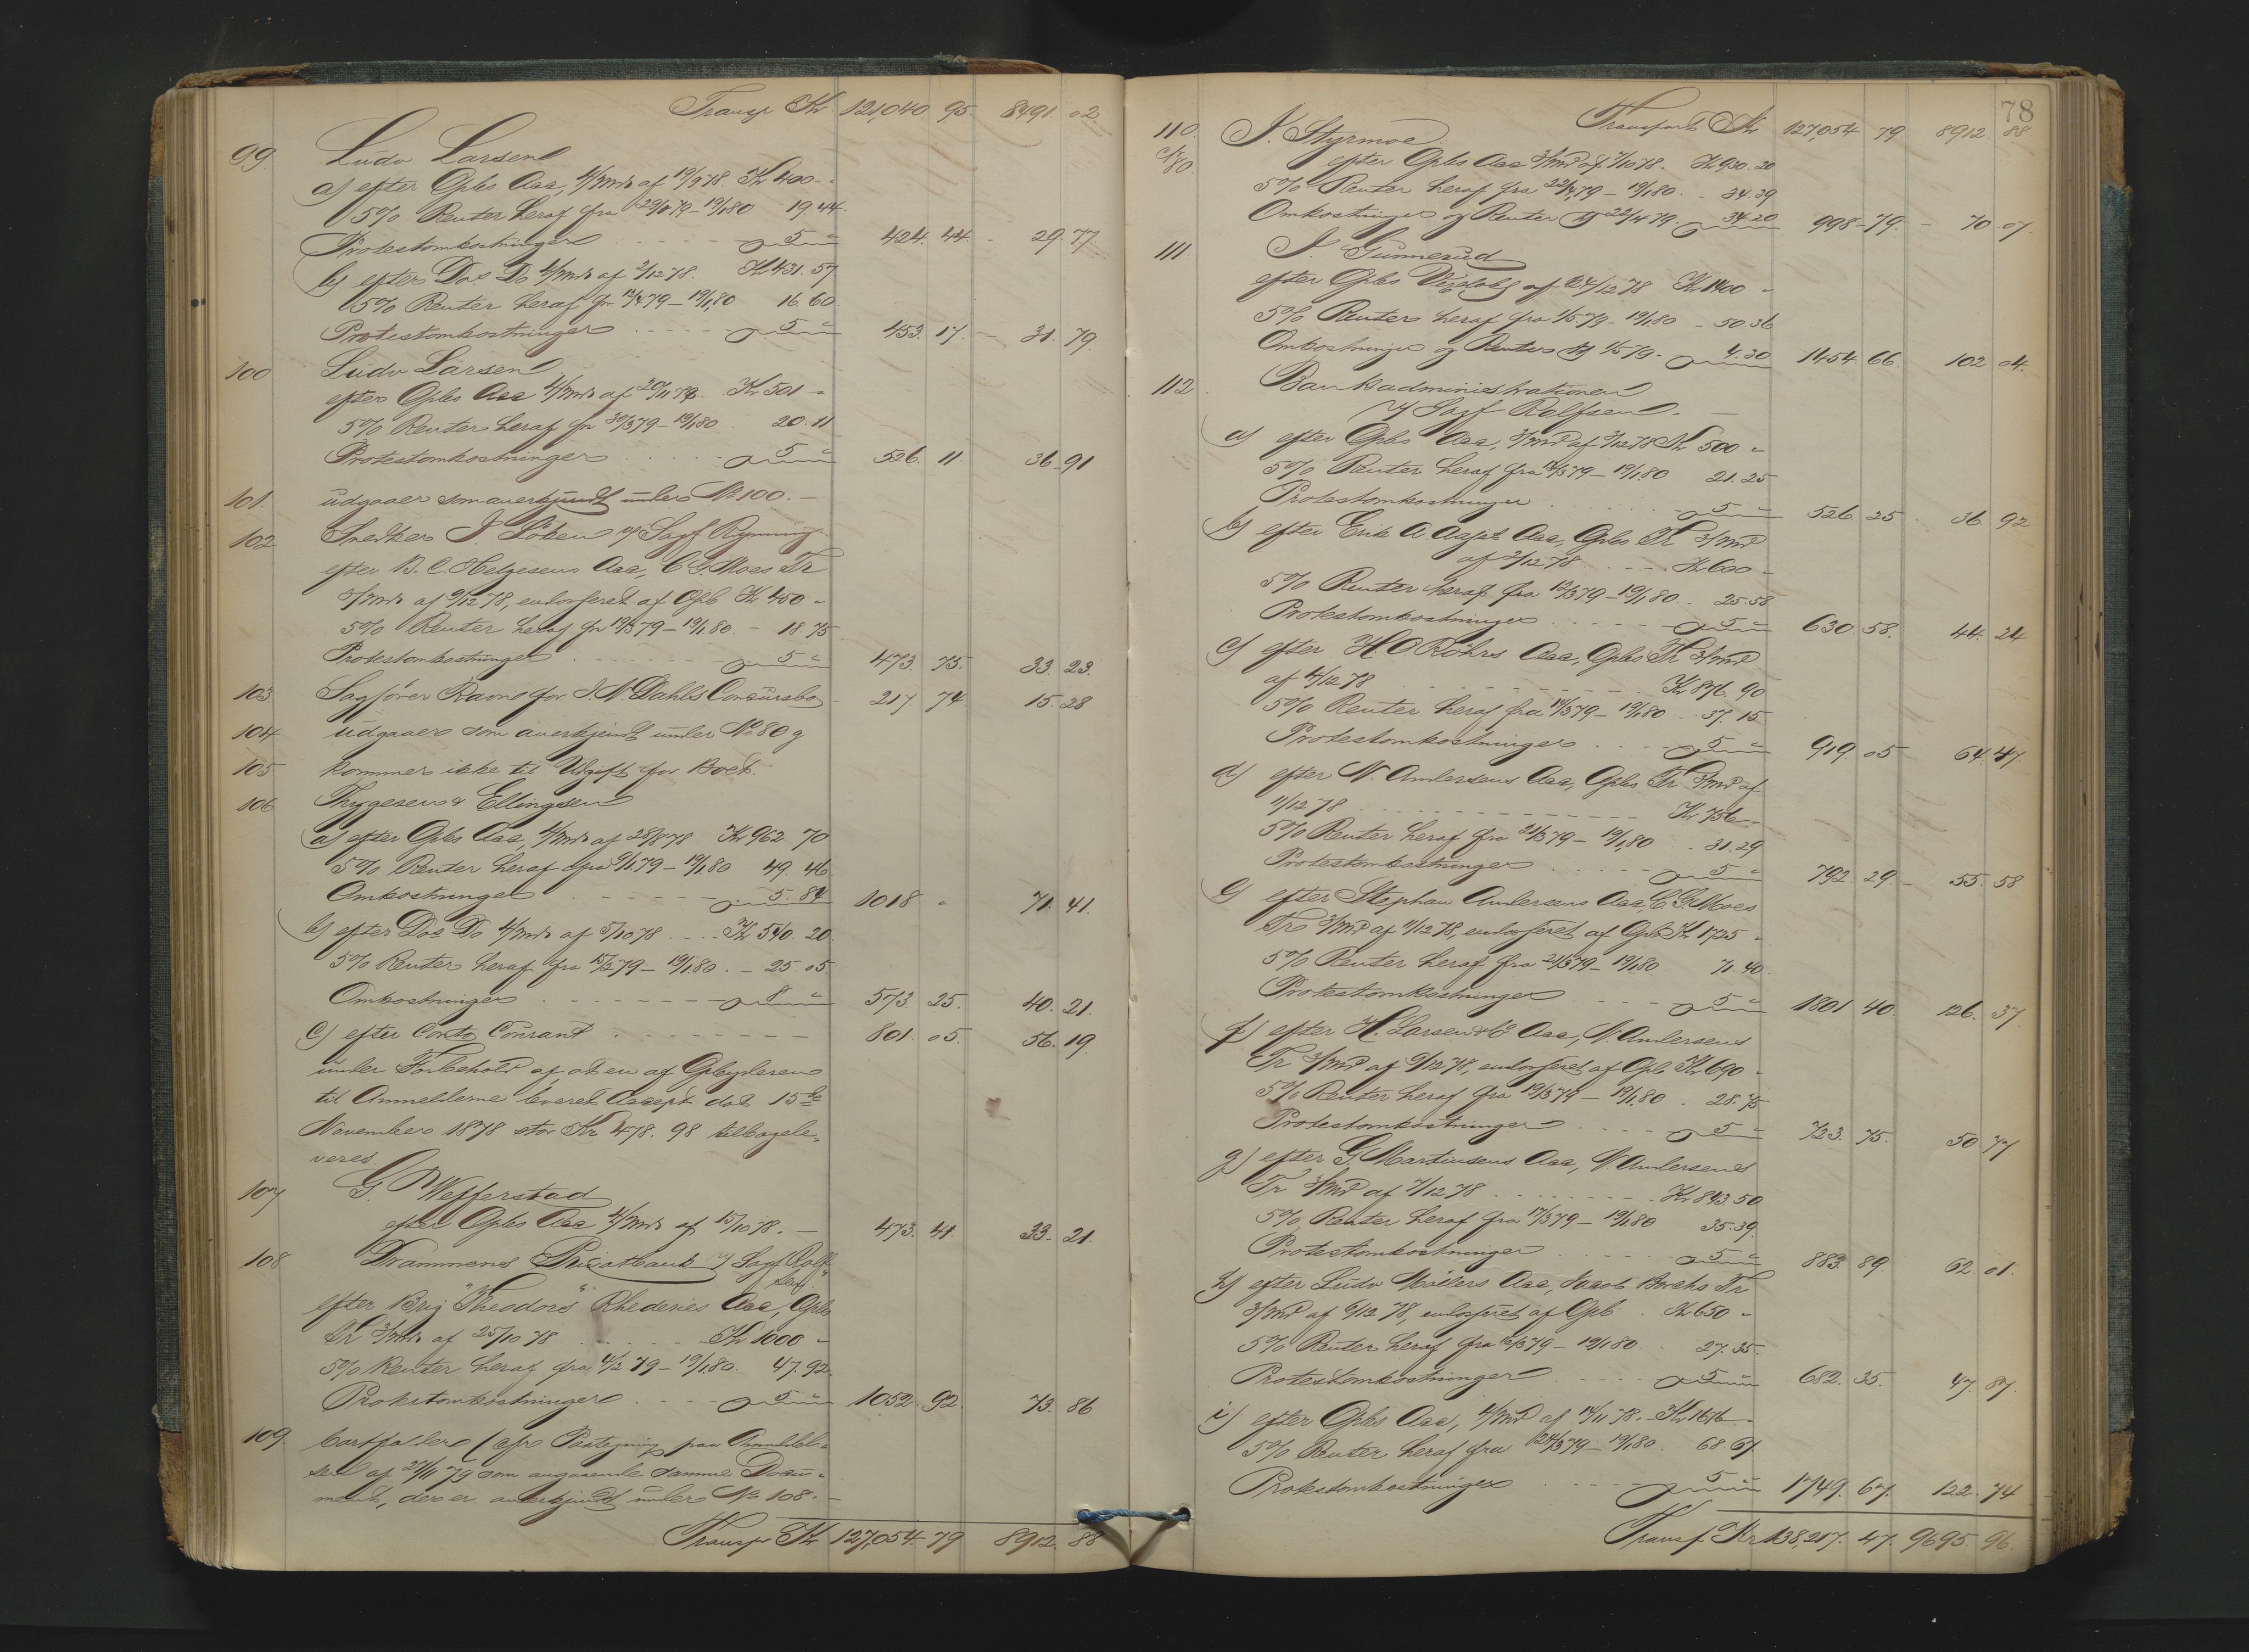 Transp Kr 121,040 95 8491. 02
99 Ludv Larsen
a) efter Gjbs Acc, 4/Mnds af 19/9 78. Kr 400 -
5% Renter heraf fra 29/1 79 - 19/1 80 19 44.
Protestomkostninger 5 " 424. 44 - 29. 77.
b) efter Dos Do 4/Mnds af 2/12 78. Kr 431. 57
5% Renter heraf fr 12/4 79 - 19/1 80 16. 60.
Protestomkostninger 5 " 453. 17. - 31. 79.
100 Ludv Larsen
efter Gjbs Acc 4/Mnds af 20/11 78. Kr 501 -
5% Renter heraf fr 30/3 79 - 19/1 80 20. 11
Protestomkostninger 5 " 526. 11. 36. 91
101. udgaaer som anerkjendt under No 100. -
102 Snedker J Löken v/ Sagf Rynning.
efter B. C. Helgesens Acc, C G. Moes Tr
3/Mnds af 9/12 78, endosseret af Gjb Kr 450 -
5% Renter heraf fr 19/3 79 - 19/1 80. - 18. 75
Protestomkostninger 5 " 473. 75. 33. 23.
103 Sagförer Ravn for J. N. Dahls Concursbo 217. 74 15. 28
104 udgaaer som anerkjendt under No 80 g
105 kommer ikke til Udgift for Boet.
106 Thygesen & Ellingsen
a) efter Gjbs Acc, 4/Mnds af 28/8 78 Kr 962. 70
5% Renter heraf fra 9/1 79 - 19/1 80 49. 46
Omkostninger 5. 84 1018 - 71. 41.
b) efter Dos Do 4/Mnds af 5/10 78 Kr 540. 20.
5% Renter heraf fra 15/2 79 - 19/1 80. - 25. 05.
Omkostninger 8 " 573. 25. 40. 21.
c) efter Conto Courant 801. 05. 56. 19
under Forbehold af at en af Gjbyderen
til Anmelderne leveret Accept dat 15de
November 1878 stor Kr 478. 98 tilbagele-
veres.
107 G. Wefferstad
efter Gjbs Acc 4/Mnds af 15/10 78. - 473. 41. 33. 21.
108 Drammens Privatbank v/ Sagf. Rolf-
sen
efter Brig "Theodors" Rhederies Acc, Gjbs
Tr 3/Mnds af 25/10 78 Kr 1000 -
5% Renter heraf fra 4/2 79 - 19/1 80. 47. 92.
Protestomkostninger 5 " 1052. 92. 73. 86
109. bortfalder (cfr Paategning paa Anmeldel-
sen af 27/11 79 som angaaende samme Docu-
ment, der er anerkjendt under No 108. -
Transp Kr 127,054. 79 8912. 88
78
Transport Kr 127,054 79 8912. 88
110. J. Styrmoe
efter Gjbs Acc 3/Mnd af 7/10 78. Kr 930. 20
5% Renter heraf fra 22/4 79 - 19/1 80. - 34. 39
Omkostninger og Renter til 22/4 79. 34. 20 998 - 79. - 70. 07.
111 J. Gunnerud
efter Gjbs af 24/12 78 Kr 1400 -
5% Renter heraf fra 1/5 79 - 19/1 80 - 50. 36
Omkostninger og Renter til 1/5 79. 4. 30 1454. 66. 102. 04.
112. Bankadministrationen
v/ Sagf Rolfsen. -
a) efter Gjbs Acc, 3/Mnd af 3/12 78 Kr 500 -
5% Renter heraf fra 13/3 79 - 19/1 80 21. 25
Protestomkostninger 5 " 526. 25 36. 92
b) efter Erik A Aases Acc, Gjbs Tr 3/Mnd
af 2/12 78 Kr 600 -
5% Renter heraf fra 12/3 79 - 19/1 80. 25. 58
Protestomkostninger 5 " 630. 58. 44. 24
c) efter H. O Röhrs Acc, Gjbs Tr 3/Mnd
af 4/12 78 Kr 876. 90
5% Renter heraf fra 14/3 79 - 19/1 80. 37. 15
Protestomkostninger 5 " 919 05 64. 47
d) efter N. Andersens Acc, Gjbs Tr 3/Mnd af
11/12 78 Kr 756 -
5% Renter heraf fra 21/3 79 - 19/1 80 31. 29
Protestomkostninger 5 " 792. 29. - 55. 58
e) efter Stephan Andersens Acc, C. G. Moes
Tr 3/Mnd af 11/12 78, endosseret af Gjb Kr 1725 -
5% Renter heraf fra 21/3 79 - 19/1 80 71. 40.
Protestomkostninger 5 " 1801 40. 126. 37.
f) efter H. Larsen & Co Acc, N. Andersens
Tr 3/Mnd af 9/12 78, endosseret af Gjb Kr 690 -
5% Renter heraf fra 19/3 79 - 19/1 80. 28. 75
Protestomkostninger 5 " 723. 75. 50 77
g) efter G. Martinsens Acc, N. Andersens
Tr 3/Mnd af 7/12 78 Kr 843. 50
5% Renter heraf fra 17/3 79 - 19/1 80 35. 39.
Protestomkostninger 5 " 883. 89. 62. 01.
h) efter Ludv Möllers Acc, Jacob Tr
3/Mnd af 6/12 78, endosseret af Gjb Kr 650 -
5% Renter heraf fra 16/3 79 - 19/1 80. 27. 35.
Protestomkostninger 5 " 682. 35. 47. 87.
i) efter Gjbs Acc, 4/Mnd af 14/11 78. Kr 1676 -
5% Renter heraf fra 24/3 79 - 19/1 80. 68 67.
Protestomkostninger 5 " 1749. 67. 122. 74
Transp Kr 138,217. 47. 9695. 96.